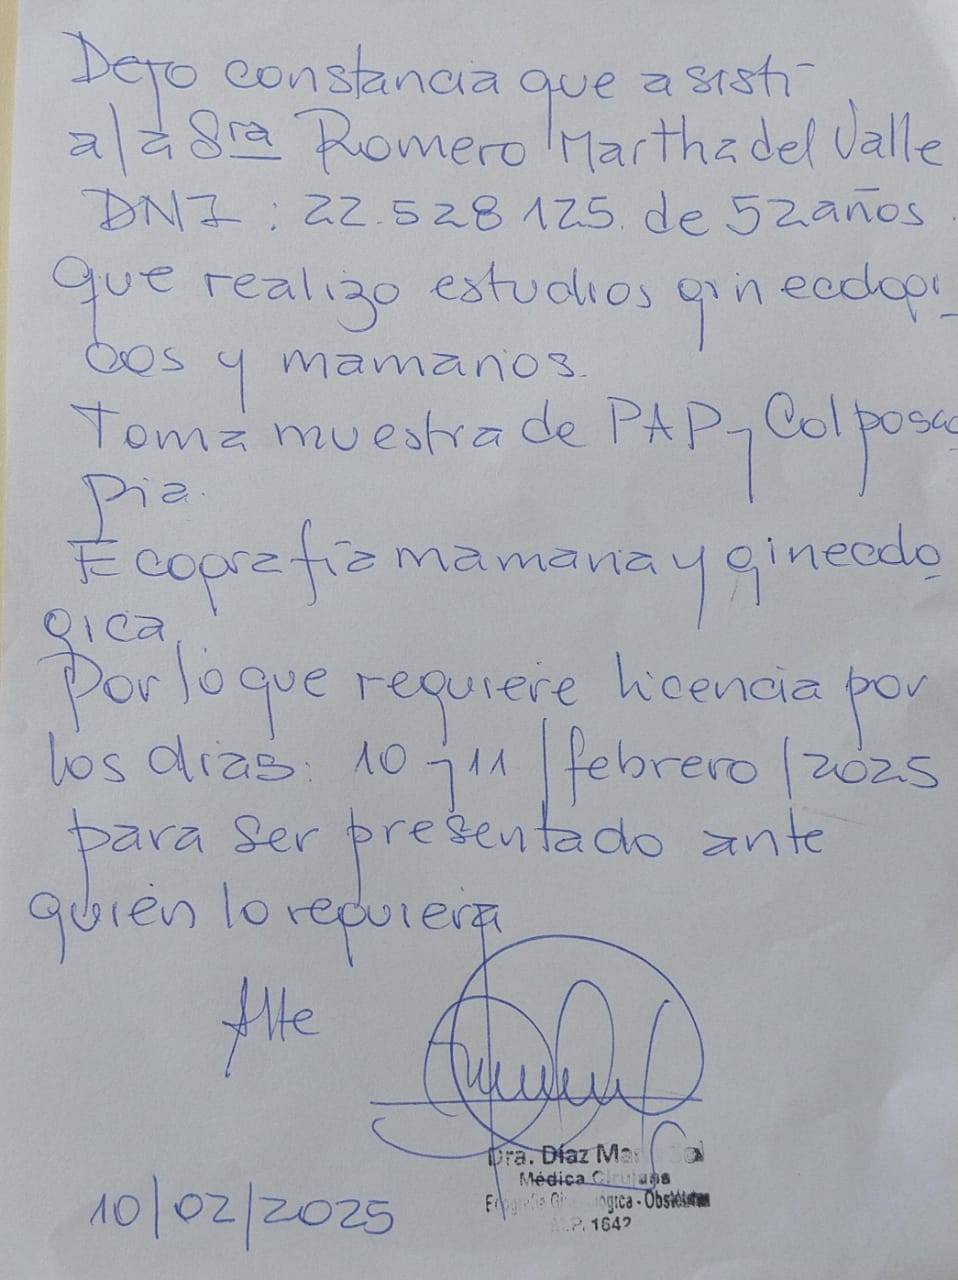 Dejo constancia que asistí
a la Sra Romero Martha del Valle
DNI: 22.528 125. de 52 años.
que realizo estudios ginecológi_
cos y mamarios.
Toma muestra de PAP y Colposco_
pia.
Ecografía mamaria y ginecoló_
gica.
Por lo que requiere licencia por
los días: 10 y 11/febrero/2025
para ser presentado ante
quién lo requiera
Atte
Dra. Díaz
Médica Cirujana
Ecografía Ginecológica - Obstétrica
M.P. 1642
10/02/2025